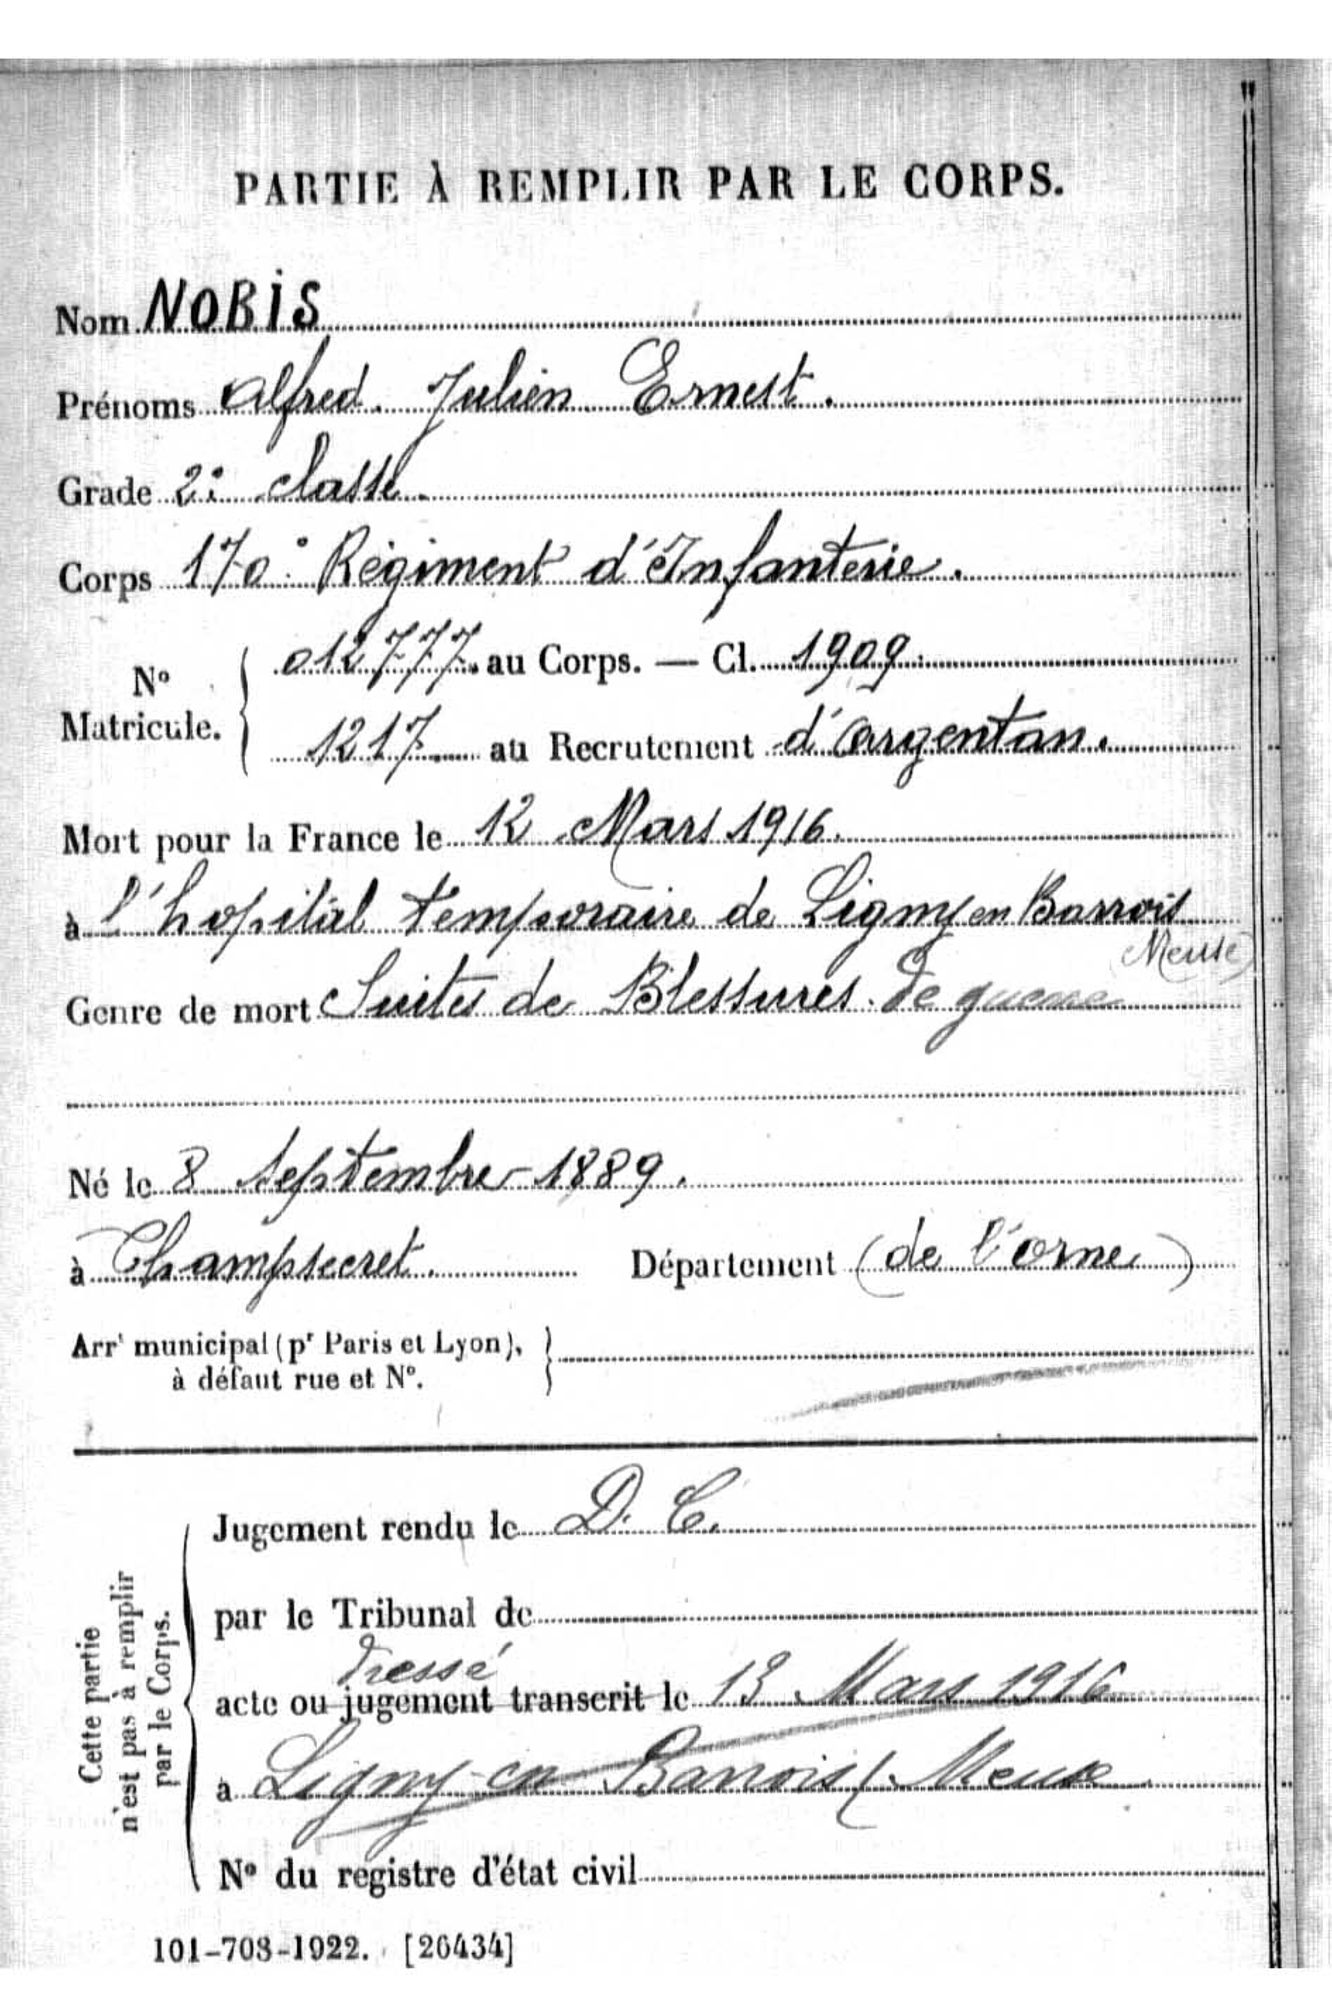 PARTIE À REMPLIR PAR LE CORPS.
Nom NOBIS
Prénoms Alfred Julien Ernest.
Grade 2e classe.
Corps 170e Régiment d'Infanterie.
No Matricule. { 012777 au Corps. — Cl. 1909.
1217 au Recrutement d'Argentan.
Mort pour la France le 12 Mars 1916.
à l'hopital temporaire de Ligny en Barrois
(Meuse)
Genre de mort Suites de Blessures de guerre
Né le 8 Septembre 1889.
à Champsecret. Département (de l'orne)
Arrt municipal (pr Paris et Lyon),
à défaut rue et No. }
Cette partie
n'est pas à remplir
par le Corps.
Jugement rendu le D. C.
par le Tribunal de
dressé
acte ou jugement transcrit le 13 Mars 1916
à Ligny-en Barrois (Meuse
No du registre d'état civil
101-708-1922. [26434]